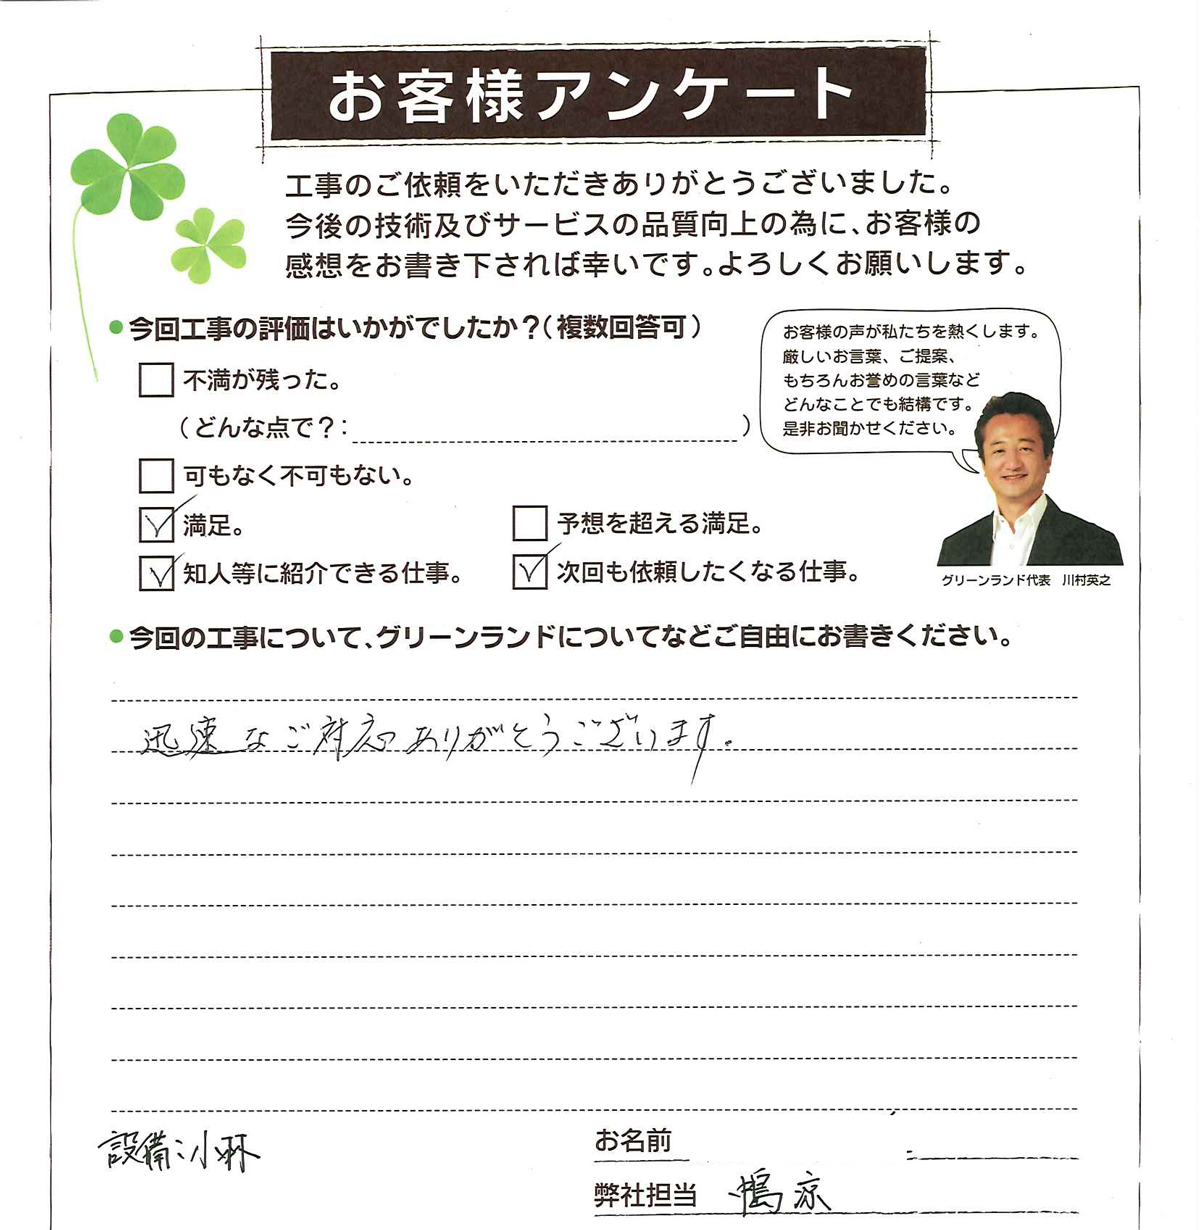 お客様アンケート
工事のご依頼をいただきありがとうございました。
今後の技術及びサービスの品質向上の為に、お客様の
感想をお書き下されば幸いです。よろしくお願いします。
●今回工事の評価はいかがでしたか?(複数回答可)
不満が残った。
(どんな点で?: )
可もなく不可もない。
満足。
予想を超える満足。
知人等に紹介できる仕事。
次回も依頼したくなる仕事。
お客様の声が私たちを熱くします。
厳しいお言葉、ご提案、
もちろんお誉めの言葉など
どんなことでも結構です。
是非お聞かせください。
グリーンランド代表 川村英之
●今回の工事について、グリーンランドについてなどご自由にお書きください。
迅速なご対応ありがとうございます。
設備:小林
お名前
弊社担当